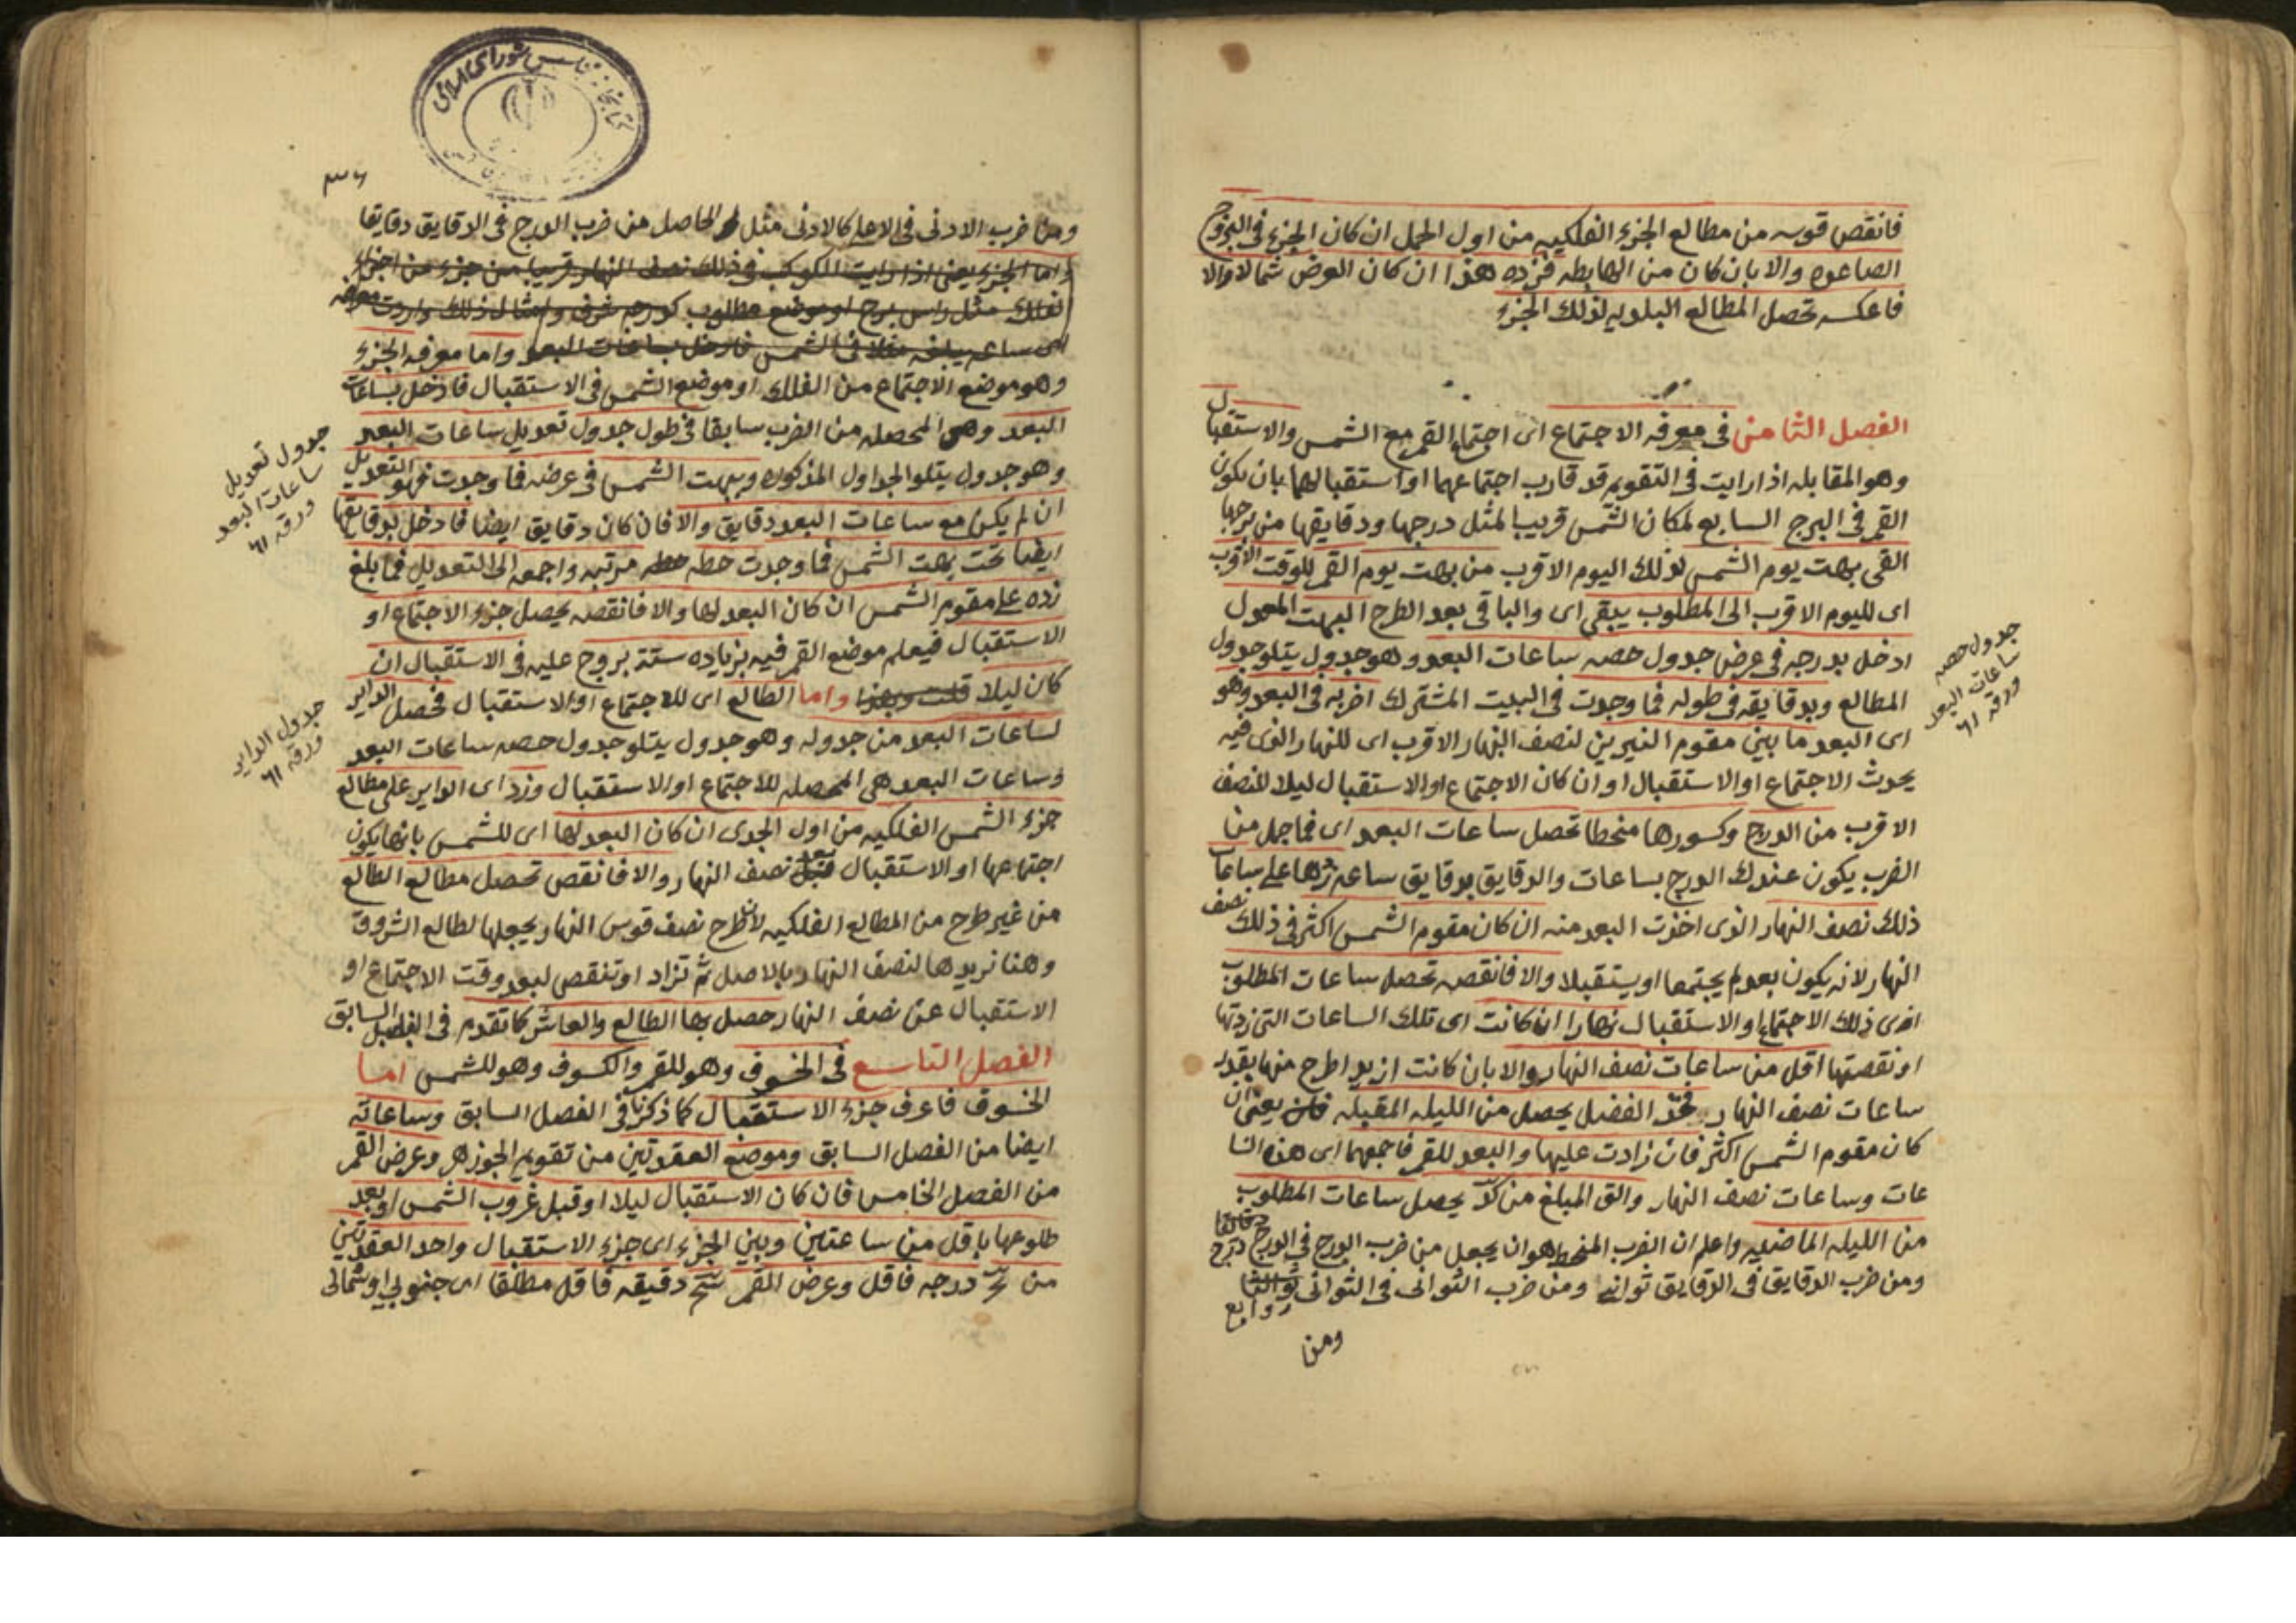 فانقص قوسه من مطالع الجزء الفلكيه من اول الحمل ان كان الجزء في البروج
الصاعده والا بان كان من الهابطه فزده هذا ان كان العرض شمالا والا
فاعكسه تحصل المطالع البلديه لذلك الجزء
الفصل الثامن في معرفه الاجتماع اى اجتماع القمر مع الشمس والاستقبال
وهو المقابله اذا رايت في التقويم قد قارب اجتماعهما او استقبالهما بان يكون
القمر في البرج السابع لمكان الشمس قريبا لمثل درجها ودقايقها من برجها
القى بهت يوم الشمس لذلك اليوم الاقرب من بهت يوم القمر للوقت الاقرب
اى لليوم الاقرب الى المطلوب يبقى اى والباقى بعد الطرح البهت المعدل
ادخل بدرجه في عرض جدول حصه ساعات البعد وهو جدول يتلو جدول
المطالع وبدقايقه في طوله فما وجدت في البيت المشترك اضربه في البعد وهو
اى البعد ما بين مقوم النيرين لنصف النهار الاقرب اى للنهار الذى فيه
يحدث الاجتماع او الاستقبال او ان كان الاجتماع او الاستقبال ليلا للنصف
الاقرب من الدرج وكسورها منحطا تحصل ساعات البعد اى فما حصل من
الضرب يكون عندك الدرج بساعات والدقايق بدقايق ساعه زدها على ساعات
ذلك نصف النهار الذى اخذت البعد منه ان كان مقوم الشمس اكثر في ذلك نصف
النهار لانه يكون بعد لم يجتمعا او يستقبلا والا فانقصه تحصل ساعات المطلوب
اى ذلك الاجتماع او الاستقبال نهارا ان كانت اى تلك الساعات التى زدتها
او نقصتها اقل من ساعات نصف النهار والا بان كانت ازيد اطرح منها بقدر
ساعات نصف النهار فخذ الفضل يحصل من الليله المقبله فان يعنى ان
كان مقوم الشمس اكثر فان زادت عليها والبعد للقمر فاجمعهما اى هذه السا
عات وساعات نصف النهار والق المبلغ من كد يحصل ساعات المطلوب
من الليله الماضيه واعلم ان الضرب المنحط هو ان يجعل من ضرب الدرج في الدرج دقايقا درج
ومن ضرب الدقايق في الدقايق ثوانى ومن ضرب الثوانى في الثوانى ثوالثا
روابع
ومن
جدول حصه
ساعات البعد
ورقه ٦١
ومن ضرب الادنى في الاعلى كالادنى مثل الحاصل من ضرب الدرج في الدقايق دقايقا
واما الجزء يعنى اذا رايت الكوكب في ذلك نصف النهار قريبا من جزء من اجزاء
الفلك مثل راس برج او موضع مطلوب كدرجه شرف وامثال ذلك واردت معرفه
اى ساعه يبلغه مثلا في الشمس فادخل بساعات البعد واما معرفه الجزء
وهو موضع الاجتماع من الفلك او موضع الشمس في الاستقبال فادخل بساعات
البعد وهى المحصله من الضرب سابقا في طول جدول تعديل ساعات البعد
وهو جدول يتلو الجداول المذكوره وببهت الشمس في عرضه فما وجدت فهو التعديل
ان لم يكن مع ساعات البعد دقايق والا فان كان دقايق ايضا فادخل بدقايقها
ايضا تحت بهت الشمس فما وجدت حطه مرتبه واجمعه الى التعديل فما بلغ
زده على مقوم الشمس ان كان البعد لها والا فانقصه يحصل جزء الاجتماع او
الاستقبال فيعلم موضع القمر فيه بزياده ستة بروج عليه في الاستقبال ان
كان ليلا قلت وبهذا واما الطالع اى للاجتماع او الاستقبال فحصل الداير
لساعات البعد من جدوله وهو جدول يتلو جدول حصه ساعات البعد
وساعات البعد هى المحصله للاجتماع او الاستقبال وزد اى الداير على مطالع
جزء الشمس الفلكيه من اول الجدى ان كان البعد لها اى للشمس بانها يكون
اجتماعها او الاستقبال بعد نصف النهار والا فانقص تحصل مطالع الطالع
من غير طرح من المطالع الفلكيه لان طرح نصف قوس النهار يجعلها لطالع الشروق
وهنا نريدها لنصف النهار بالاصل ثم تزاد او تنقص لبعد وقت الاجتماع او
الاستقبال عن نصف النهار حصل بها الطالع والعاشر كما تقدم في الفصل السابق
الفصل التاسع في الخسوف وهو للقمر والكسوف وهو للشمس اما
الخسوف فاعرف جزء الاستقبال كما ذكرنا في الفصل السابق وساعاته
ايضا من الفصل السابق وموضع العقدتين من تقويم الجوزهر وعرض القمر
من الفصل الخامس فان كان الاستقبال ليلا او قبل غروب الشمس او بعد
طلوعها باقل من ساعتين وبين الجزء اى جزء الاستقبال واحد العقدتين
من درجه فاقل وعرض القمر دقيقه فاقل مطلقا اى جنوبي او شمالى
جدول تعديل
ساعات البعد
ورقه ٦١
جدول الداير
ورقه ٦١